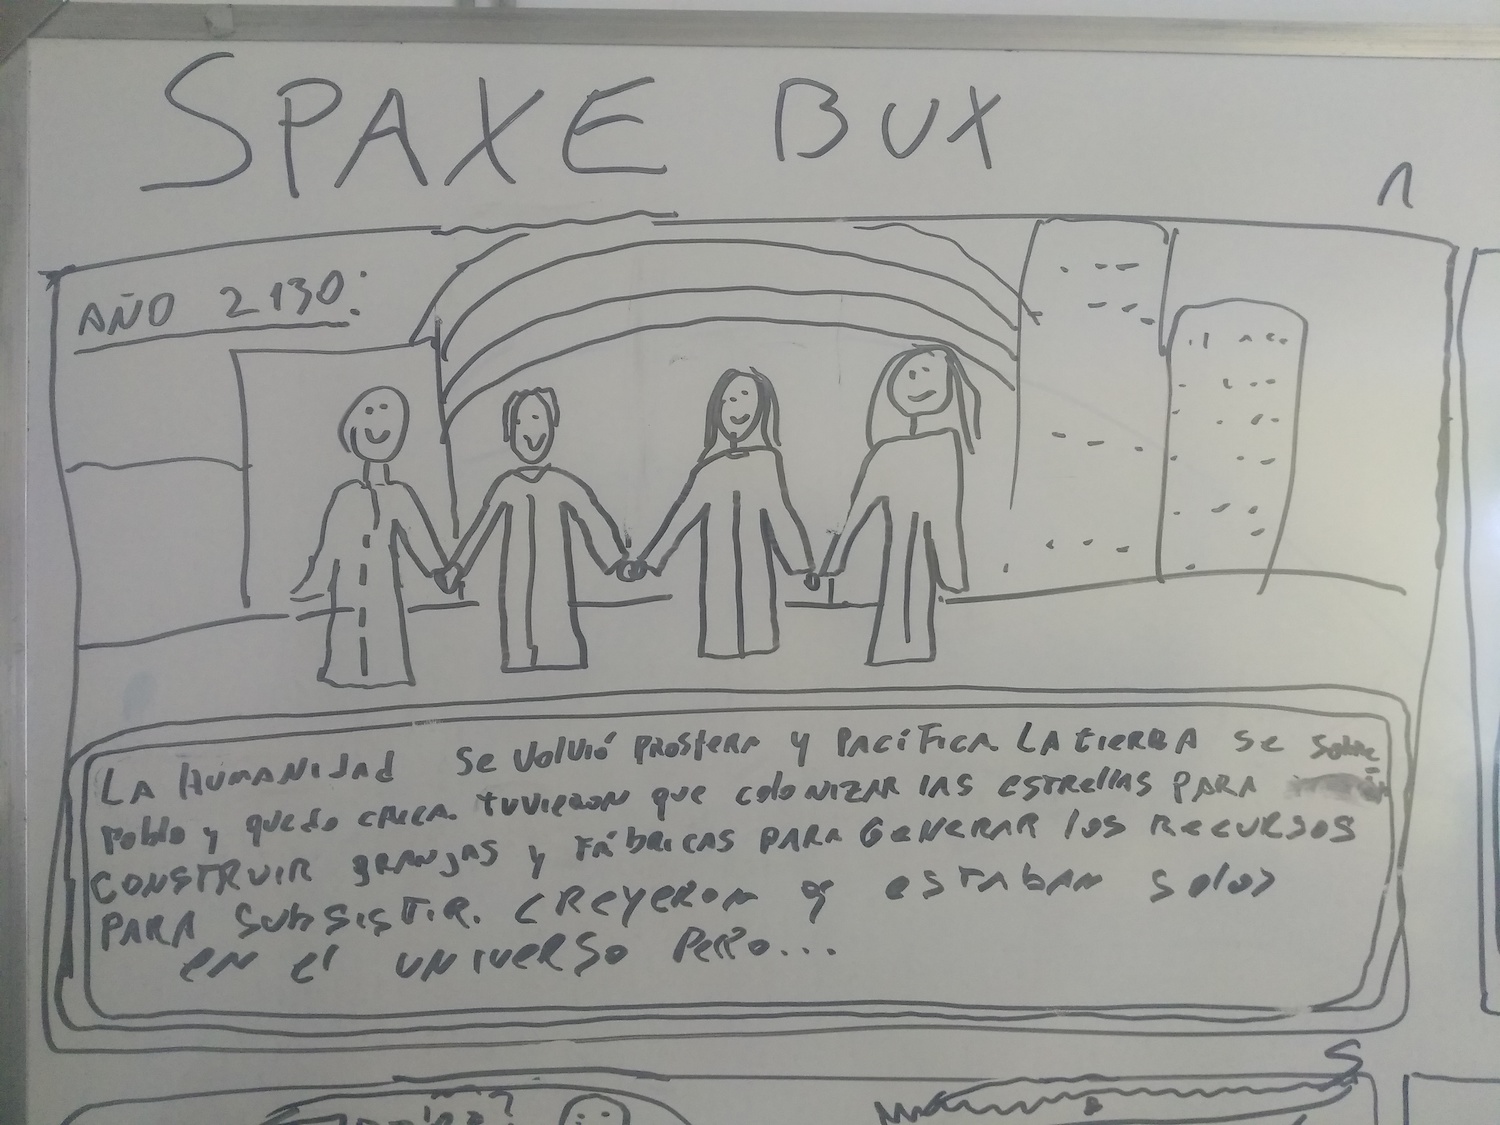 SPAXE BUX
1
AÑO 2130:
LA HUMANIdAd se volvió PROSPERA y PACíFICA. LA tIERRA se sobre-
poblo y quedo CHICA. tuvieRON que colonizAR lAS estRellAS PARA
CONSTRUIR gRANjAS y FÁbRICAS PARA GeNeRAR los RecuRSOS
PARA SubsiSTIR. CREYERON q estABAN solos
en el uNIveRSo PeRo...
S